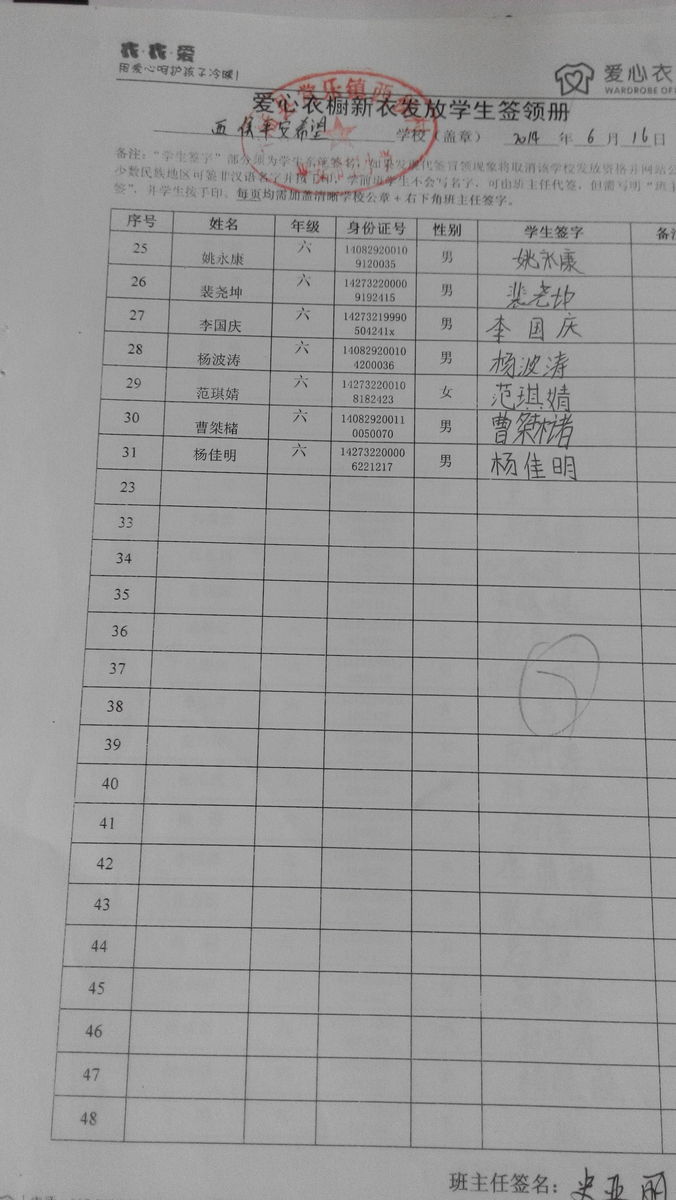 我·我·爱
用爱心呵护孩子冷暖!
爱心衣
WARDROBE OF
爱心衣橱新衣发放学生签领册
西侯平安希望 学校（盖章） 2014 年 6 月 16 日
签”，并学生按手印、每页均需加盖清晰学校公章+右下角班主任签字。
序号 姓名 年级 身份证号 性别 学生签字 备注
25 姚永康 六 14082920010 9120035 男 姚永康
26 裴尧坤 六 14273220000 9192415 男 裴尧坤
27 李国庆 六 14273219990 504241x 男 李国庆
28 杨波涛 六 14082920010 4200036 男 杨波涛
29 范琪婧 六 14273220010 8182423 女 范琪婧
30 曹桀楮 六 14082920011 0050070 男 曹桀楮
31 杨佳明 六 14273220000 6221217 男 杨佳明
23
33
34
35
36
37
38
39
40
41
42
43
44
45
46
47
48
班主任签名：史亚丽